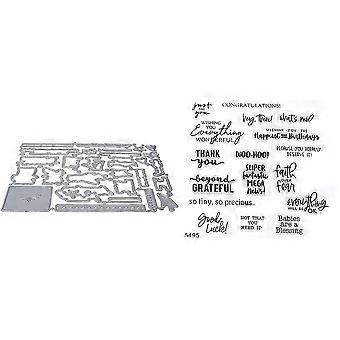 just
for
you
CONGRATULATIONS!
WISHING
YOU
Everything
WONDERFUL
hey, there!
what's new?
WISHING YOU THE
Happiest OF Birthdays
THANK
YOU
WOO-HOO!
BECAUSE YOU REALLY
DESERVE IT!
SUPER
fantastic
MEGA
news!
faith
over
fear
beyond
GRATEFUL
so tiny, so precious...
everything
WILL BE OK
Good
Luck!
NOT THAT
YOU
NEED IT
Babies
are a
Blessing
S495